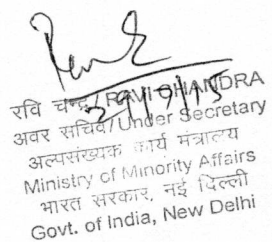 रवि चन्द्र/RAVI CHANDRA
29/7/15
अवर सचिव/Under Secretary
अल्पसंख्यक कार्य मंत्रालय
Ministry of Minority Affairs
भारत सरकार, नई दिल्ली
Govt. of India, New Delhi